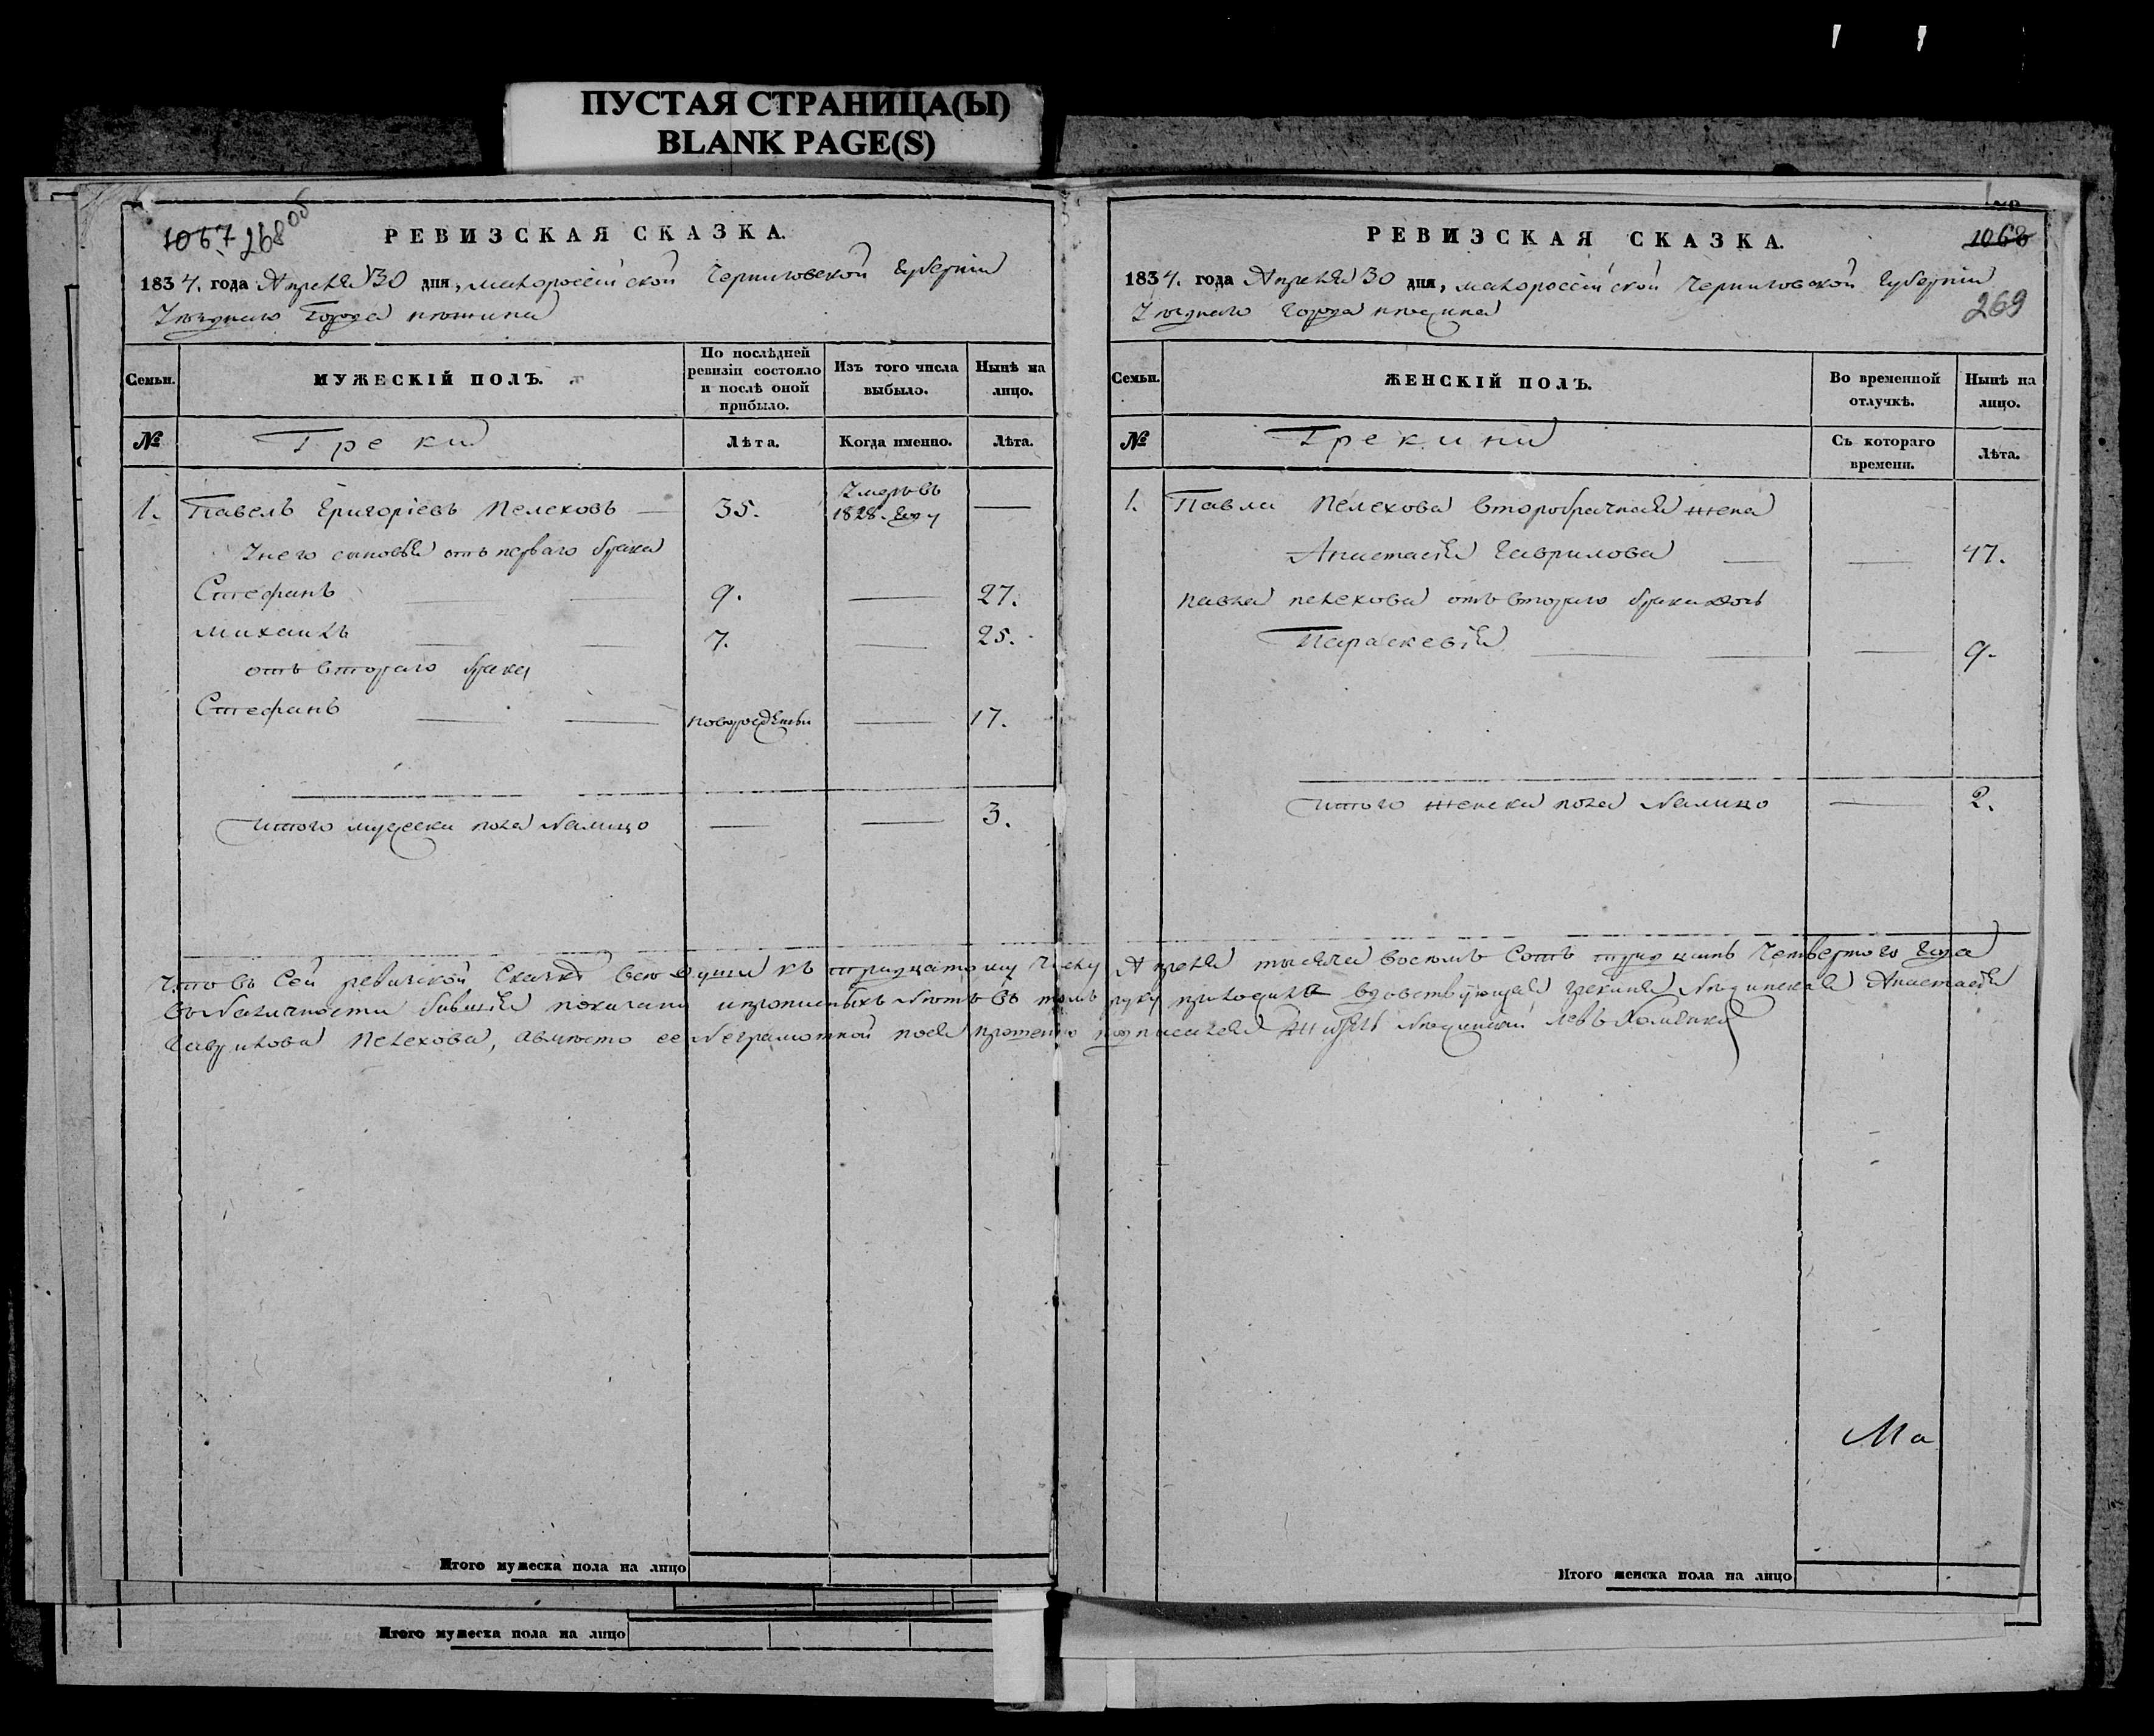 ПУСТАЯ СТРАНИЦА(Ы)
BLANK PAGE(S)
1067 268 об
РЕВИЗСКАЯ СКАЗКА.
1834. года Апреля 30 дня, малороссійской Черниговской Губерніи
Уезднаго Города нежина
Семьи.
МУЖЕСКІЙ ПОЛЪ.
По послѣдней ревизіи состояло и послѣ оной прибыло.
Изъ того числа выбыло.
Нынѣ на лицо.
№
Греки
Лѣта.
Когда именно.
Лѣта.
1. Павелъ Григоріевъ Пелеховъ 35. Умеръ въ 1828. Году
Унего сыновья отъ перваго брака
Стефанъ 9. 27.
михаилъ 7. 25.
отъ втораго брака
Стефанъ новорожденъ 17.
итого мужеска пола налицо 3.
Итого мужеска пола на лицо
Итого мужеска пола на лицо
РЕВИЗСКАЯ СКАЗКА.
1068
1834. года Апреля 30 дня, малороссійской Черниговской Губерніи
269
Уезднаго Города нежина
Семьи.
ЖЕНСКІЙ ПОЛЪ.
Во временной отлучкѣ.
Нынѣ на лицо.
№
Грекини
Съ котораго времени.
Лѣта.
1. Павла Пелехова второбрачная жена
Анастасія Гаврилова 47.
павла пелехова отъ втораго брака дочь
Параскевія 9.
итого женска пола налицо 2.
Что въ Сей ревизской Сказке всѣ души къ тридцатому числу Апреля тысяча восемъ Сотъ тридцать Четвертого Года
въ наличности бывшія показаны ипрописныхъ нетъ въ томъ руку приложила вдовствующая грекиня Нежинская Анастасія
Гаврилова Пелехова, авместо ее неграмотной поея прошенію подписался житель Нежинскій левъ Хоменко
Ма
Итого женска пола на лицо